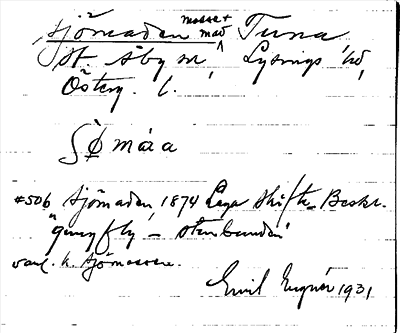 Sjömaden mosse + mad Tuna
St. Åby sn, Lysings hd,
Österg. l.
ʃø maa
#506 Sjömaden 1874 Laga Skifte Beskr.
"gungfly - stenbunden"
k. Sjömossen.
Emil 1931